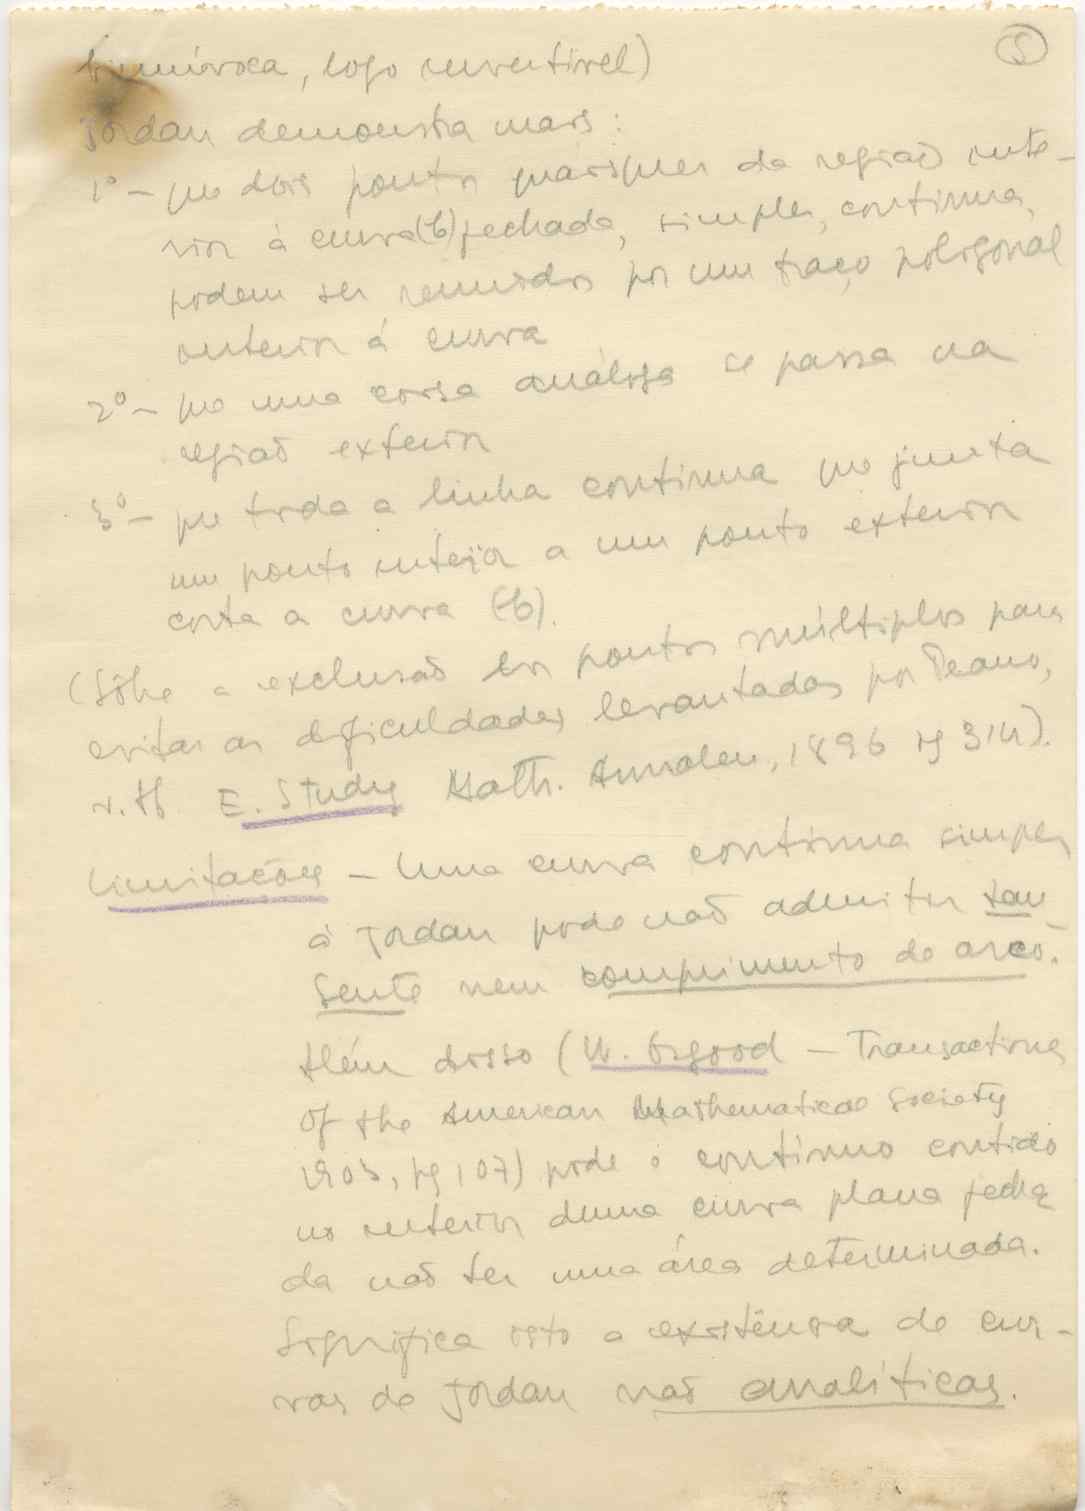 5
biunívoca, logo invertível)
Jordan demonstra mais:
1º - que dois pontos quaisquer da região inte-
rior à curva (C) fechada, simples, contínua,
podem ser reunidos por um traço poligonal
interior á curva
2º - que uma coisa análoga se passa na
região exterior
3º - que toda a linha contínua que junta
um ponto interior a um ponto exterior
corta a curva (C).
(Sôbre a exclusão dos pontos múltiplos para
evitar as dificuldades levantadas por Peano,
v. E. Study Math. Annalen, 1896 pg 314).
Limitações - Uma curva contínua simples
à Jordan pode não admitir tan-
gente nem comprimento de arco.
Além disso (W. Osgood - Transactions
of the American Mathematical Society
1903, pg 107) pode o contínuo contido
no interior duma curva plana fecha
da não ter uma área determinada.
Significa isto a existência de cur-
vas de Jordan não analíticas.